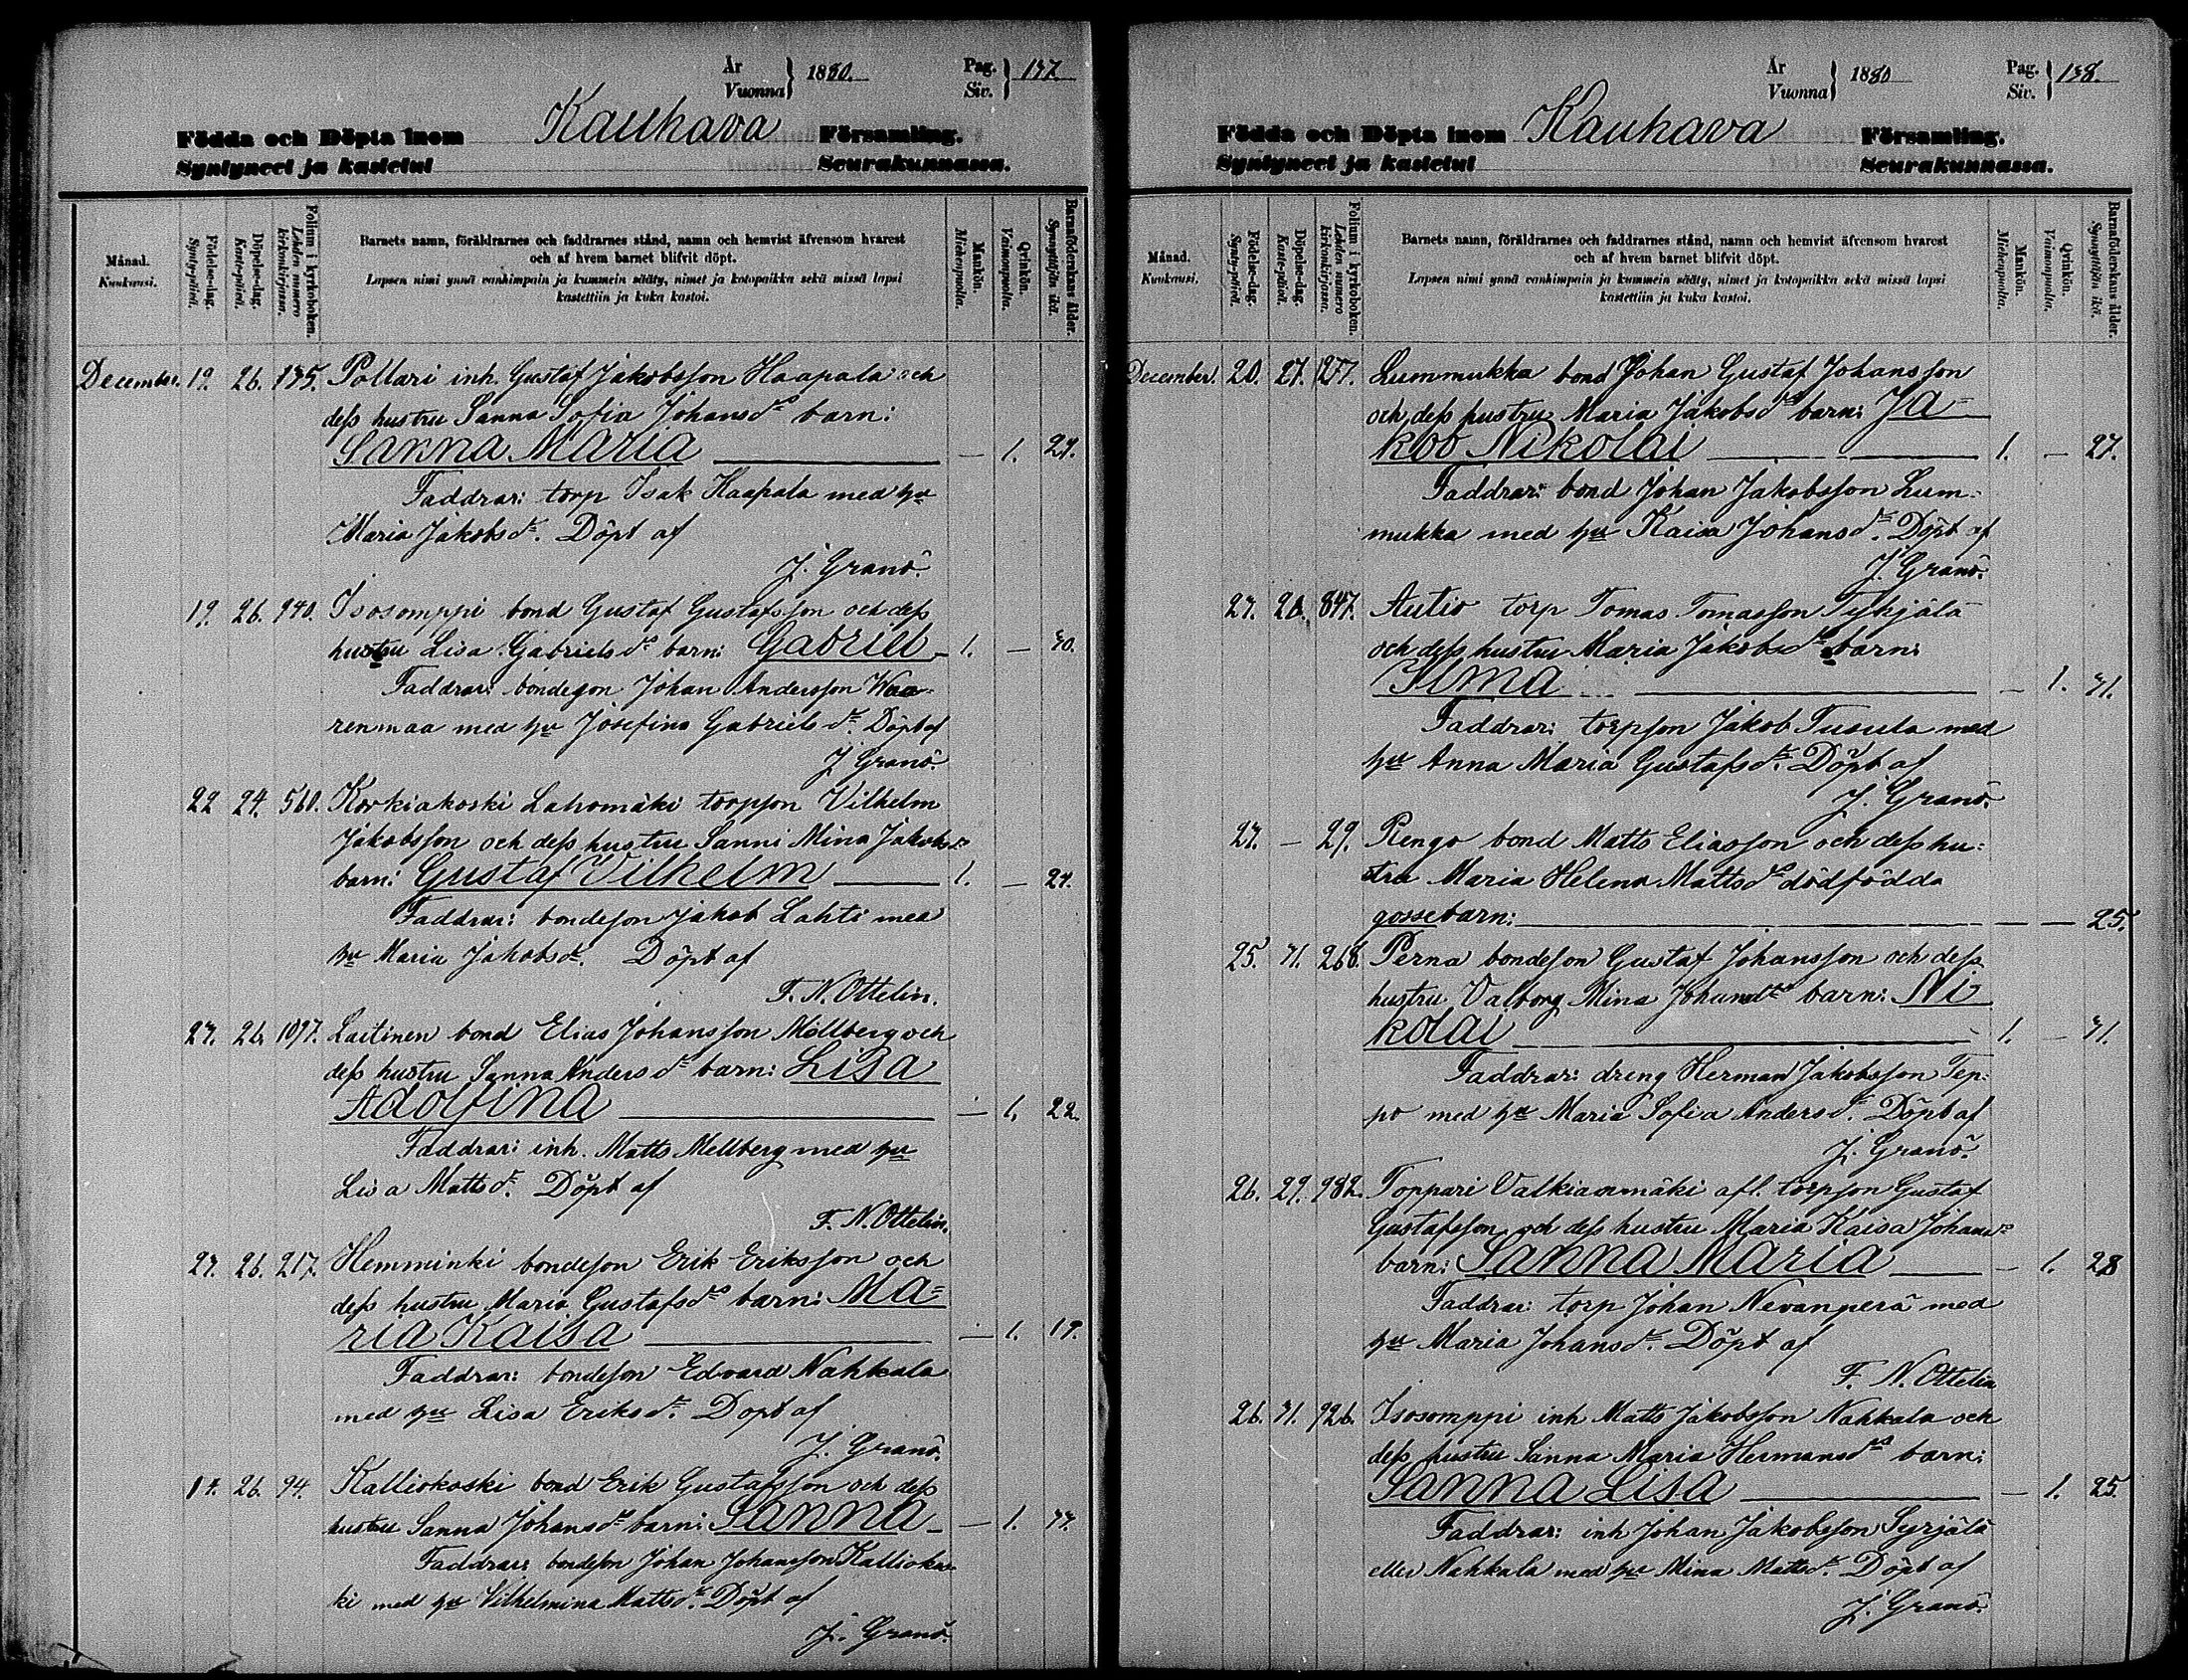 År
Vuonna } 1880.
Pag.
Siv. } 137.
Födda och Döpta inom Kauhava Församling.
Syntyneet ja kastetut Seurakunnassa.
Månad.
Kuukausi.
Födelse-dag.
Synty-päivä.
Döpelse-dag.
Kaste-päivä.
Folium i kyrkoboken.
Lehden numero kirkonkirjassa.
Barnets namn, föräldrarnes och faddrarnes stånd, namn och hemvist äfvensom hvarest
och af hvem barnet blifvit döpt.
Lapsen nimi ynnä vanhimpain ja kummein sääty, nimet ja kotopaikka sekä missä lapsi
kastettiin ja kuka kastoi.
Mankön.
Miehenpuolta.
Qvinkön.
Vaimonpuolta.
Barnaföderskans ålder.
Synnyttäjän ikä.
December. 19. 26. 135. Pollari inh. Gustaf Jakobsson Haapala och
dess hustru Sanna Sofia Johansdr barn:
Sanna Maria — 1. 27.
Faddrar: torp Isak Haapala med hu
Maria Jakobsdr. Döpt af
J. Granö.
19. 26. 940. Isosomppi bond Gustaf Gustafsson och dess
hustru Lisa Gabrielsdr barn: Gabriel 1. — 30.
Faddrar: bondeson Johan Andersson Waa-
renmaa med hu Josefina Gabrielsdr. Döpt af
J. Granö.
22 24. 560. Korkiakoski Lahomäki torpson Vilhelm
Jakobsson och dess hustru Sanni Mina Jakobsdr
barn: Gustaf Vilhelm 1. — 24.
Faddrar: bondeson Jakob Lahti med
hu Maria Jakobsdr. Döpt af
F. N. Ottelin.
23. 26. 1097. Laitinen bond Elias Johansson Mellberg och
dess hustru Sanna Andersdr barn: Lisa
Adolfina — 1. 22.
Faddrar: inh. Matts Mellberg med hu
Lisa Mattsdr. Döpt af
F. N. Ottelin.
23. 26. 217. Hemminki bondeson Erik Eriksson och
dess hustru Maria Gustafsdr barn: Ma=
ria Kaisa — 1. 19.
Faddrar: bondeson Edvard Nahkala
med hu Lisa Eriksdr. Döpt af
J. Granö.
26. 94. Kalliokoski bond Erik Gustafsson och dess
hustru Sanna Johansdr barn: Sanna — 1. 33.
Faddrar: bondeson Johan Johansson Kalliokos-
ki med hu Vilhelmina Mattsdr. Döpt af
J. Granö.
År
Vuonna } 1880
Pag.
Siv. } 138.
Födda och Döpta inom Kauhava Församling.
Syntyneet ja kastetut Seurakunnassa.
Månad.
Kuukausi.
Födelse-dag.
Synty-päivä.
Döpelse-dag.
Kaste-päivä.
Folium i kyrkoboken.
Lehden numero kirkonkirjassa.
Barnets namn, föräldrarnes och faddrarnes stånd, namn och hemvist äfvensom hvarest
och af hvem barnet blifvit döpt.
Lapsen nimi ynnä vanhimpain ja kummein sääty, nimet ja kotopaikka sekä missä lapsi
kastettiin ja kuka kastoi.
Mankön.
Miehenpuolta.
Qvinkön.
Vaimonpuolta.
Barnaföderskans ålder.
Synnyttäjän ikä.
December. 20. 27. 1277. Lummukka bond Johan Gustaf Johansson
och dess hustru Maria Jakobsdr barn: Ja=
kob Nikolai 1. — 27.
Faddrar: bond Johan Jakobsson Lum-
mukka med hu Kaisa Johansdr. Döpt af
J. Granö.
23. 28. 847. Autio torp Tomas Tomasson Tyhjälä
och dess hustru Maria Jakobsdr barn:
Iima — 1. 31.
Faddrar: torpson Jakob Tusula med
hu Anna Maria Gustafsdr. Döpt af
J. Granö.
23. — 29. Rengo bond Matts Eliasson och dess hu-
stru Maria Helena Mattsdr dödfödda
gossebarn: — — 25.
25. 31. 268. Perna bondeson Gustaf Johansson och dess
hustru Valborg Mina Johansdr barn: Ni
kolai 1. — 31.
Faddrar: dreng Herman Jakobsson Tep-
po med hu Maria Sofia Andersdr. Döpt af
J. Granö.
26. 29. 982. Toppari Valkiammäki afl. torpson Gustaf
Gustafsson och dess hustru Maria Kaisa Johansdr
barn: Sanna Maria — 1. 28
Faddrar: torp Johan Nevanperä med
hu Maria Johansdr. Döpt af
F. N. Ottelin
26. 31. 926. Isosomppi inh Matts Jakobsson Nahkala och
dess hustru Sanna Maria Hermansdr barn:
Sanna Lisa — 1. 25.
Faddrar: inh Johan Jakobsson Syrjälä
eller Nahkala med hu Mina Mattsdr. Döpt af
J. Granö.